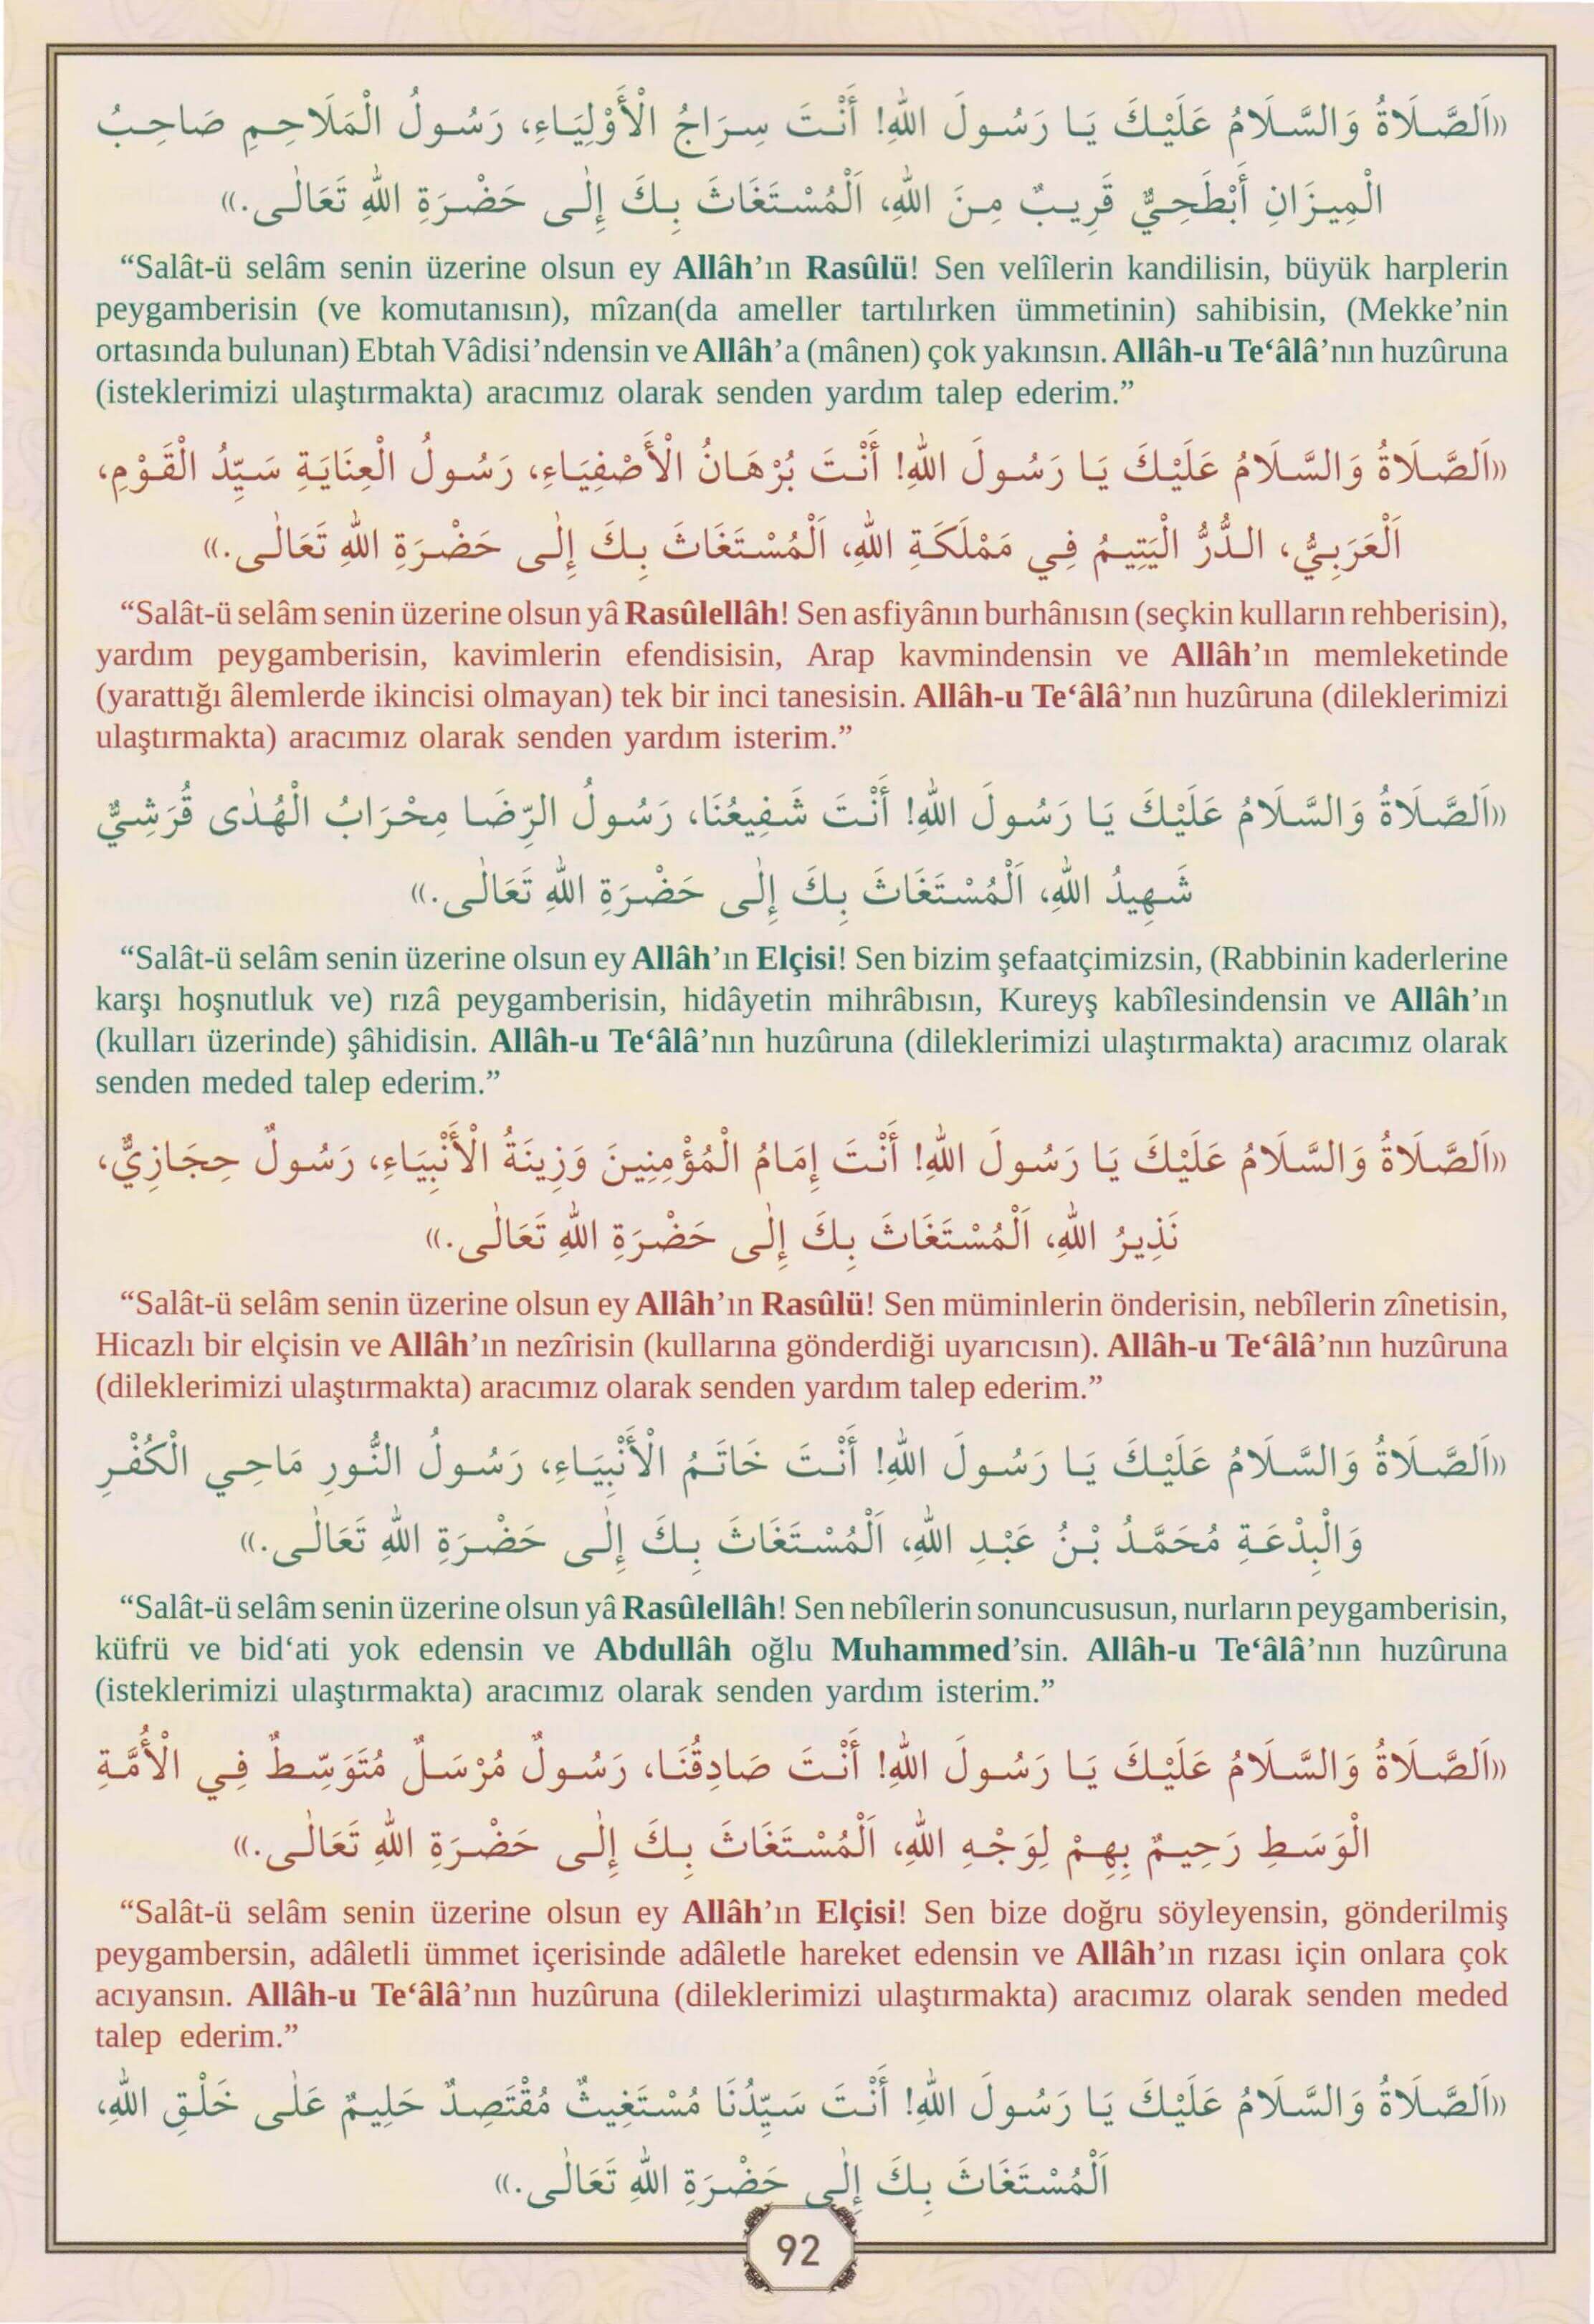 «اَلصَّلَاةُ وَالسَّلَامُ عَلَيْكَ يَا رَسُولَ اللهِ! أَنْتَ سِرَاجُ الْأَوْلِيَاءِ، رَسُولُ الْمَلَاحِمِ صَاحِبُ
الْمِيزَانِ أَبْطَحِيٌّ قَرِيبٌ مِنَ اللهِ، اَلْمُسْتَغَاثَ بِكَ إِلٰى حَضْرَةِ اللهِ تَعَالٰى.»
“Salât-ü selâm senin üzerine olsun ey Allâh’ın Rasûlü! Sen velîlerin kandilisin, büyük harplerin
peygamberisin (ve komutanısın), mîzan(da ameller tartılırken ümmetinin) sahibisin, (Mekke’nin
ortasında bulunan) Ebtah Vâdisi’ndensin ve Allâh’a (mânen) çok yakınsın. Allâh-u Te‘âlâ’nın huzûruna
(isteklerimizi ulaştırmakta) aracımız olarak senden yardım talep ederim.”
«اَلصَّلَاةُ وَالسَّلَامُ عَلَيْكَ يَا رَسُولَ اللهِ! أَنْتَ بُرْهَانُ الْأَصْفِيَاءِ، رَسُولُ الْعِنَايَةِ سَيِّدُ الْقَوْمِ،
اَلْعَرَبِيُّ، الدُّرُّ الْيَتِيمُ فِي مَمْلَكَةِ اللهِ، اَلْمُسْتَغَاثَ بِكَ إِلٰى حَضْرَةِ اللهِ تَعَالٰى.»
“Salât-ü selâm senin üzerine olsun yâ Rasûlellâh! Sen asfiyânın burhânısın (seçkin kulların rehberisin),
yardım peygamberisin, kavimlerin efendisisin, Arap kavmindensin ve Allâh’ın memleketinde
(yarattığı âlemlerde ikincisi olmayan) tek bir inci tanesisin. Allâh-u Te‘âlâ’nın huzûruna (dileklerimizi
ulaştırmakta) aracımız olarak senden yardım isterim.”
«اَلصَّلَاةُ وَالسَّلَامُ عَلَيْكَ يَا رَسُولَ اللهِ! أَنْتَ شَفِيعُنَا، رَسُولُ الرِّضَا مِحْرَابُ الْهُدٰى قُرَشِيٌّ
شَهِيدُ اللهِ، اَلْمُسْتَغَاثَ بِكَ إِلٰى حَضْرَةِ اللهِ تَعَالٰى.»
“Salât-ü selâm senin üzerine olsun ey Allâh’ın Elçisi! Sen bizim şefaatçimizsin, (Rabbinin kaderlerine
karşı hoşnutluk ve) rızâ peygamberisin, hidâyetin mihrâbısın, Kureyş kabîlesindensin ve Allâh’ın
(kulları üzerinde) şâhidisin. Allâh-u Te‘âlâ’nın huzûruna (dileklerimizi ulaştırmakta) aracımız olarak
senden meded talep ederim.”
«اَلصَّلَاةُ وَالسَّلَامُ عَلَيْكَ يَا رَسُولَ اللهِ! أَنْتَ إِمَامُ الْمُؤْمِنِينَ وَزِينَةُ الْأَنْبِيَاءِ، رَسُولٌ حِجَازِيٌّ،
نَذِيرُ اللهِ، اَلْمُسْتَغَاثَ بِكَ إِلٰى حَضْرَةِ اللهِ تَعَالٰى.»
“Salât-ü selâm senin üzerine olsun ey Allâh’ın Rasûlü! Sen müminlerin önderisin, nebîlerin zînetisin,
Hicazlı bir elçisin ve Allâh’ın nezîrisin (kullarına gönderdiği uyarıcısın). Allâh-u Te‘âlâ’nın huzûruna
(dileklerimizi ulaştırmakta) aracımız olarak senden yardım talep ederim.”
«اَلصَّلَاةُ وَالسَّلَامُ عَلَيْكَ يَا رَسُولَ اللهِ! أَنْتَ خَاتَمُ الْأَنْبِيَاءِ، رَسُولُ النُّورِ مَاحِي الْكُفْرِ
وَالْبِدْعَةِ مُحَمَّدُ بْنُ عَبْدِ اللهِ، اَلْمُسْتَغَاثَ بِكَ إِلٰى حَضْرَةِ اللهِ تَعَالٰى.»
“Salât-ü selâm senin üzerine olsun yâ Rasûlellâh! Sen nebîlerin sonuncususun, nurların peygamberisin,
küfrü ve bid‘ati yok edensin ve Abdullâh oğlu Muhammed’sin. Allâh-u Te‘âlâ’nın huzûruna
(isteklerimizi ulaştırmakta) aracımız olarak senden yardım isterim.”
«اَلصَّلَاةُ وَالسَّلَامُ عَلَيْكَ يَا رَسُولَ اللهِ! أَنْتَ صَادِقُنَا، رَسُولٌ مُرْسَلٌ مُتَوَسِّطٌ فِي الْأُمَّةِ
الْوَسَطِ رَحِيمٌ بِهِمْ لِوَجْهِ اللهِ، اَلْمُسْتَغَاثَ بِكَ إِلٰى حَضْرَةِ اللهِ تَعَالٰى.»
“Salât-ü selâm senin üzerine olsun ey Allâh’ın Elçisi! Sen bize doğru söyleyensin, gönderilmiş
peygambersin, adâletli ümmet içerisinde adâletle hareket edensin ve Allâh’ın rızası için onlara çok
acıyansın. Allâh-u Te‘âlâ’nın huzûruna (dileklerimizi ulaştırmakta) aracımız olarak senden meded
talep ederim.”
«اَلصَّلَاةُ وَالسَّلَامُ عَلَيْكَ يَا رَسُولَ اللهِ! أَنْتَ سَيِّدُنَا مُسْتَغِيثٌ مُقْتَصِدٌ حَلِيمٌ عَلٰى خَلْقِ اللهِ،
اَلْمُسْتَغَاثَ بِكَ إِلٰى حَضْرَةِ اللهِ تَعَالٰى.»
92